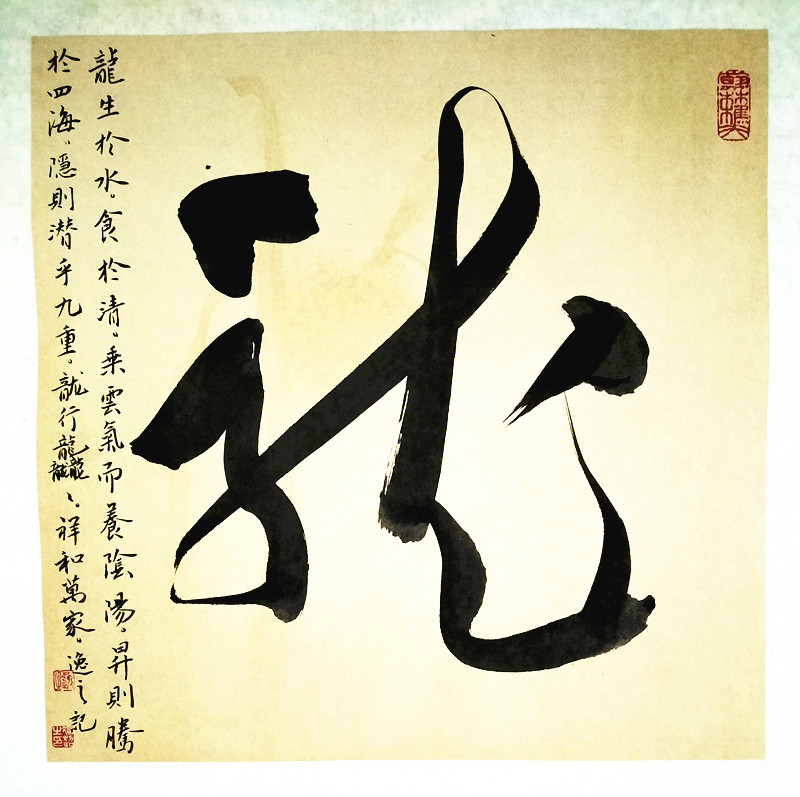 龍
龍生於水。食於清。乘雲氣而養陰陽。昇則騰
於四海。隱則潜乎九重。龍行龘々。祥和萬家。逸之記